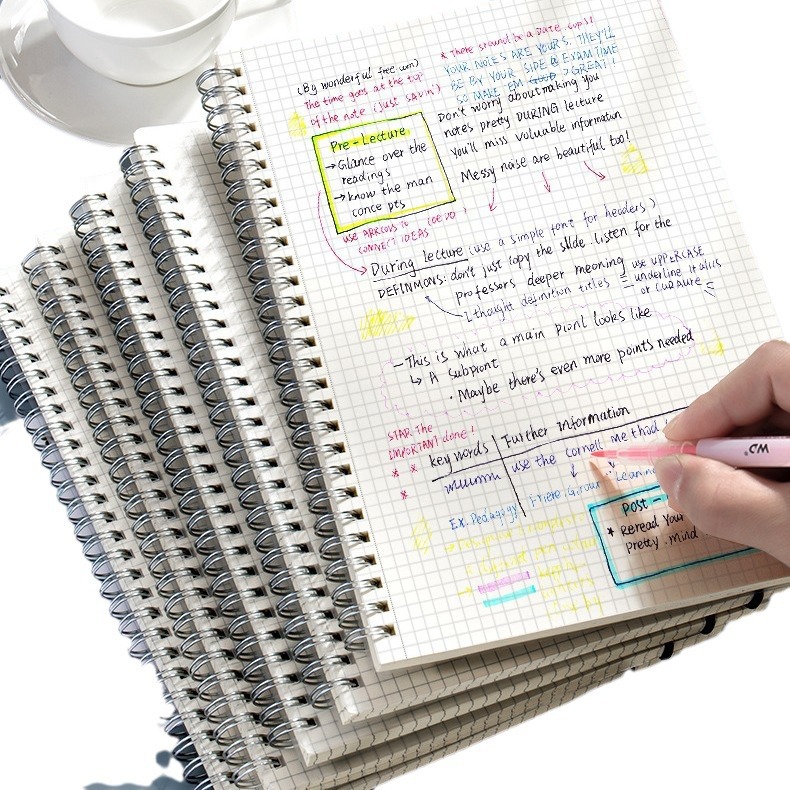 (By wonderful free um)
The time goes at the top
of the note (just sayin')
* There should be a Date, cups!
YOUR NOTES ARE YOURS. THEY'LL
BE BY YOUR SIDE @ EXAM TIME
SO MAKE 'EM GREAT!
Don't worry about making you
notes pretty DURING lecture
You'll miss valuable information
Messy noise are beautiful too!
Pre-Lecture
→Glance over the
readings
→know the man
conce pts
USE ARROWS TO
CONNECT IDEAS
During lecture (use a simple font for headers)
DEFINMONS: don't just copy the slide. listen for the
professors deeper meoning
use UPPERCASE
underline italiis
or CURAURE
I thought definition titles =
—This is what a main pionl looks like
↳ A subpiont
· Maybe there's even more points needed
STAR The
IMPORTANT done!
* *
*
key words
Further information
use the cornell me thod
Ex. Pedagogy
Friere
Leaning
Post -
* Reread Your
pretty. mind
WD®